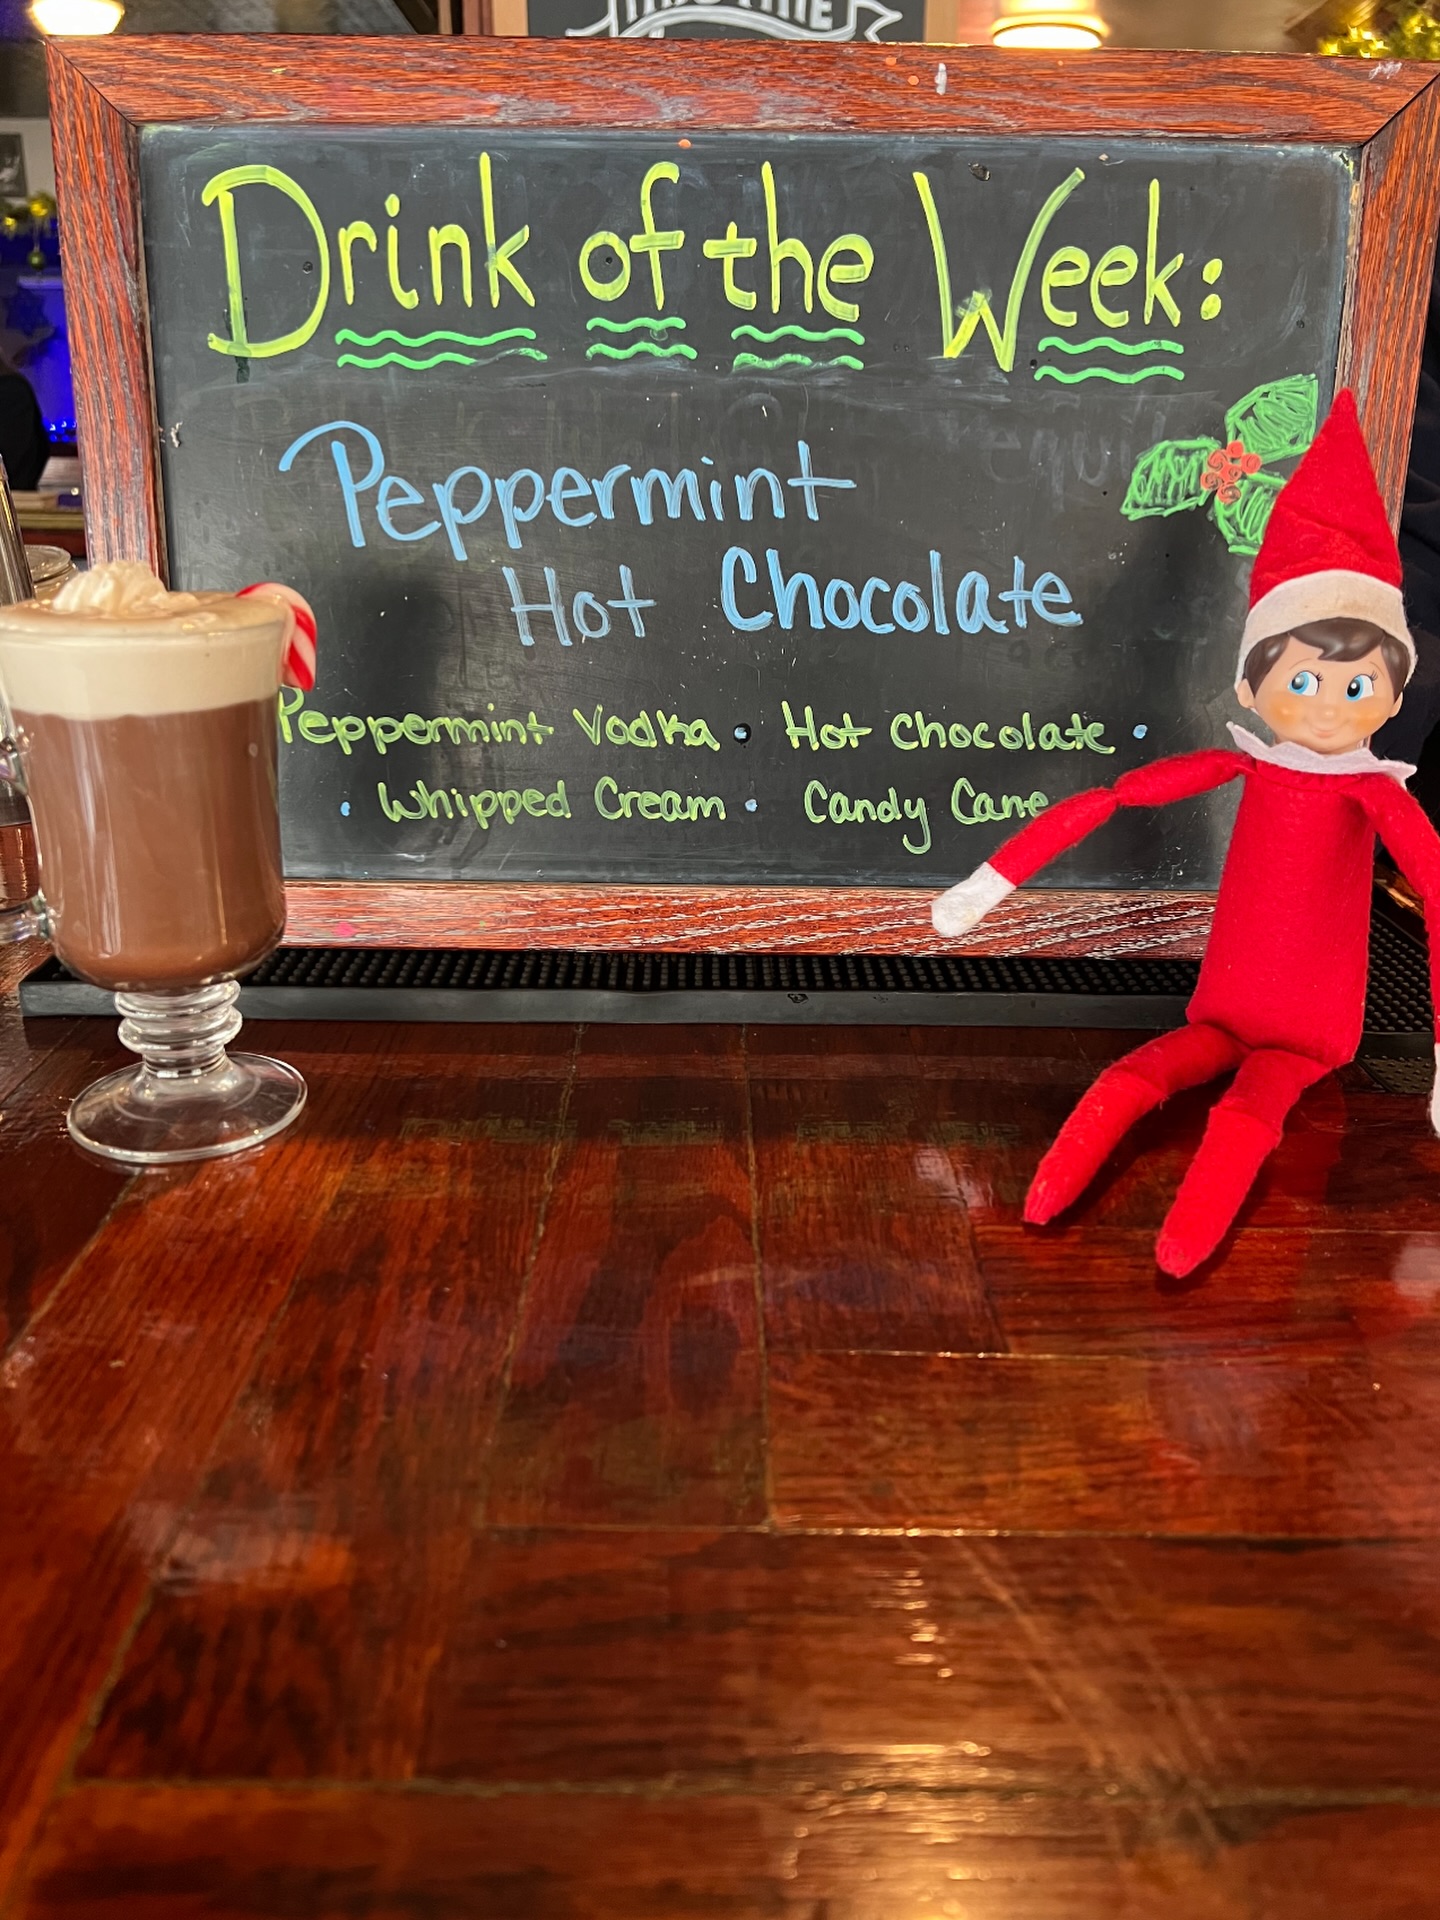 Drink of the Week:
Peppermint
Hot Chocolate
Peppermint Vodka • Hot Chocolate •
• Whipped Cream • Candy Cane